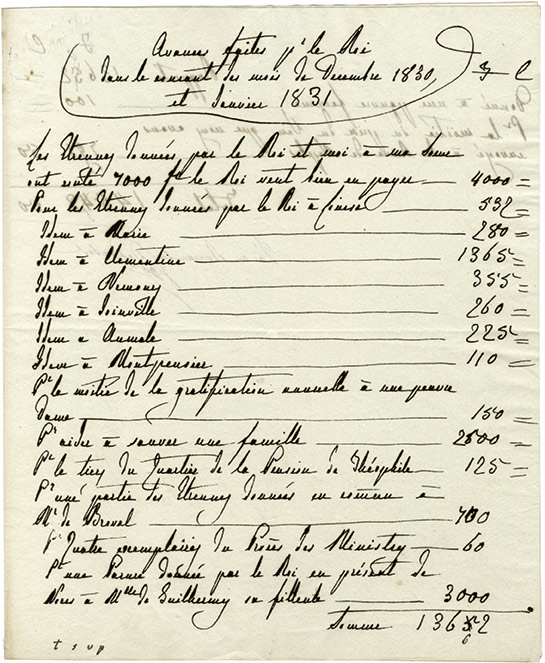 Avances faites pr le Roi
dans le courant des mois de Decembre 1830,
et Janvier 1831
Les Etrennes données par le Roi et moi à ma Soeur
ont couté 7000 fs le Roi veut bien en payer 4000 =
Pour les Etrennes données par le Roi à Louise 532 =
Idem à Marie 280 =
Idem à Clementine 1365 =
Idem à Nemours 355 =
Idem à Joinville 260 =
Idem à Aumale 225 =
Idem à Montpensier 110 =
Pr la moitié de la gratification annuelle à une pauvre
Dame 150 =
Pr aider à sauver une famille 2500 =
Pr le tiers du Quartier de la Pension de Théophile 125 =
Pr une partie des Etrennes données en commun à
Mr de Broval 700
Pr Quatre exemplaires du Procès des Ministres 60
Pr une Parure donnée par le Roi en présent de
Noces à Mlle de Guilhermy sa filleule 3000
Somme 13652
6
t s v p